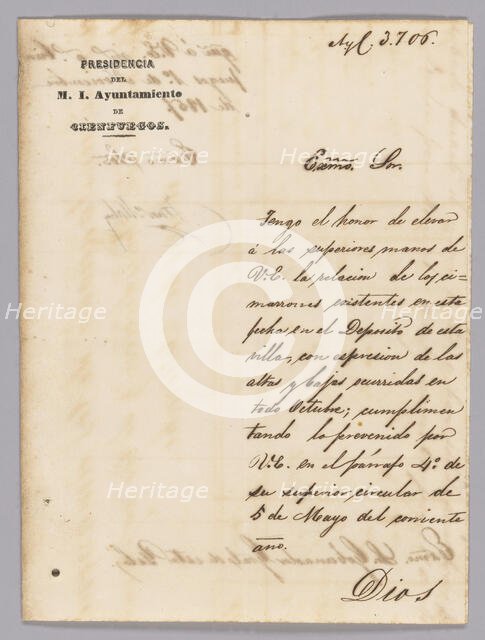 Nyl. 3.706.
PRESIDENCIA
DEL
M. I. Ayuntamiento
DE
CIENFUEGOS.
Exmo. Sor.
Tengo el honor de elevar
á las superiores manos de
V.E. la relacion de los ci-
marrones existentes en esta
fecha, en el Depósito de esta
villa, con espresion de las
altas y bajas ocurridas en
todo Octubre; cumplimen
tando lo prevenido por
V.E. en el párrafo 4º. de
su superior circular de
5 de Mayo del corriente
año.
Dios
Heritage
Heritage
Heritage
Heritage
Heritage
Heritage